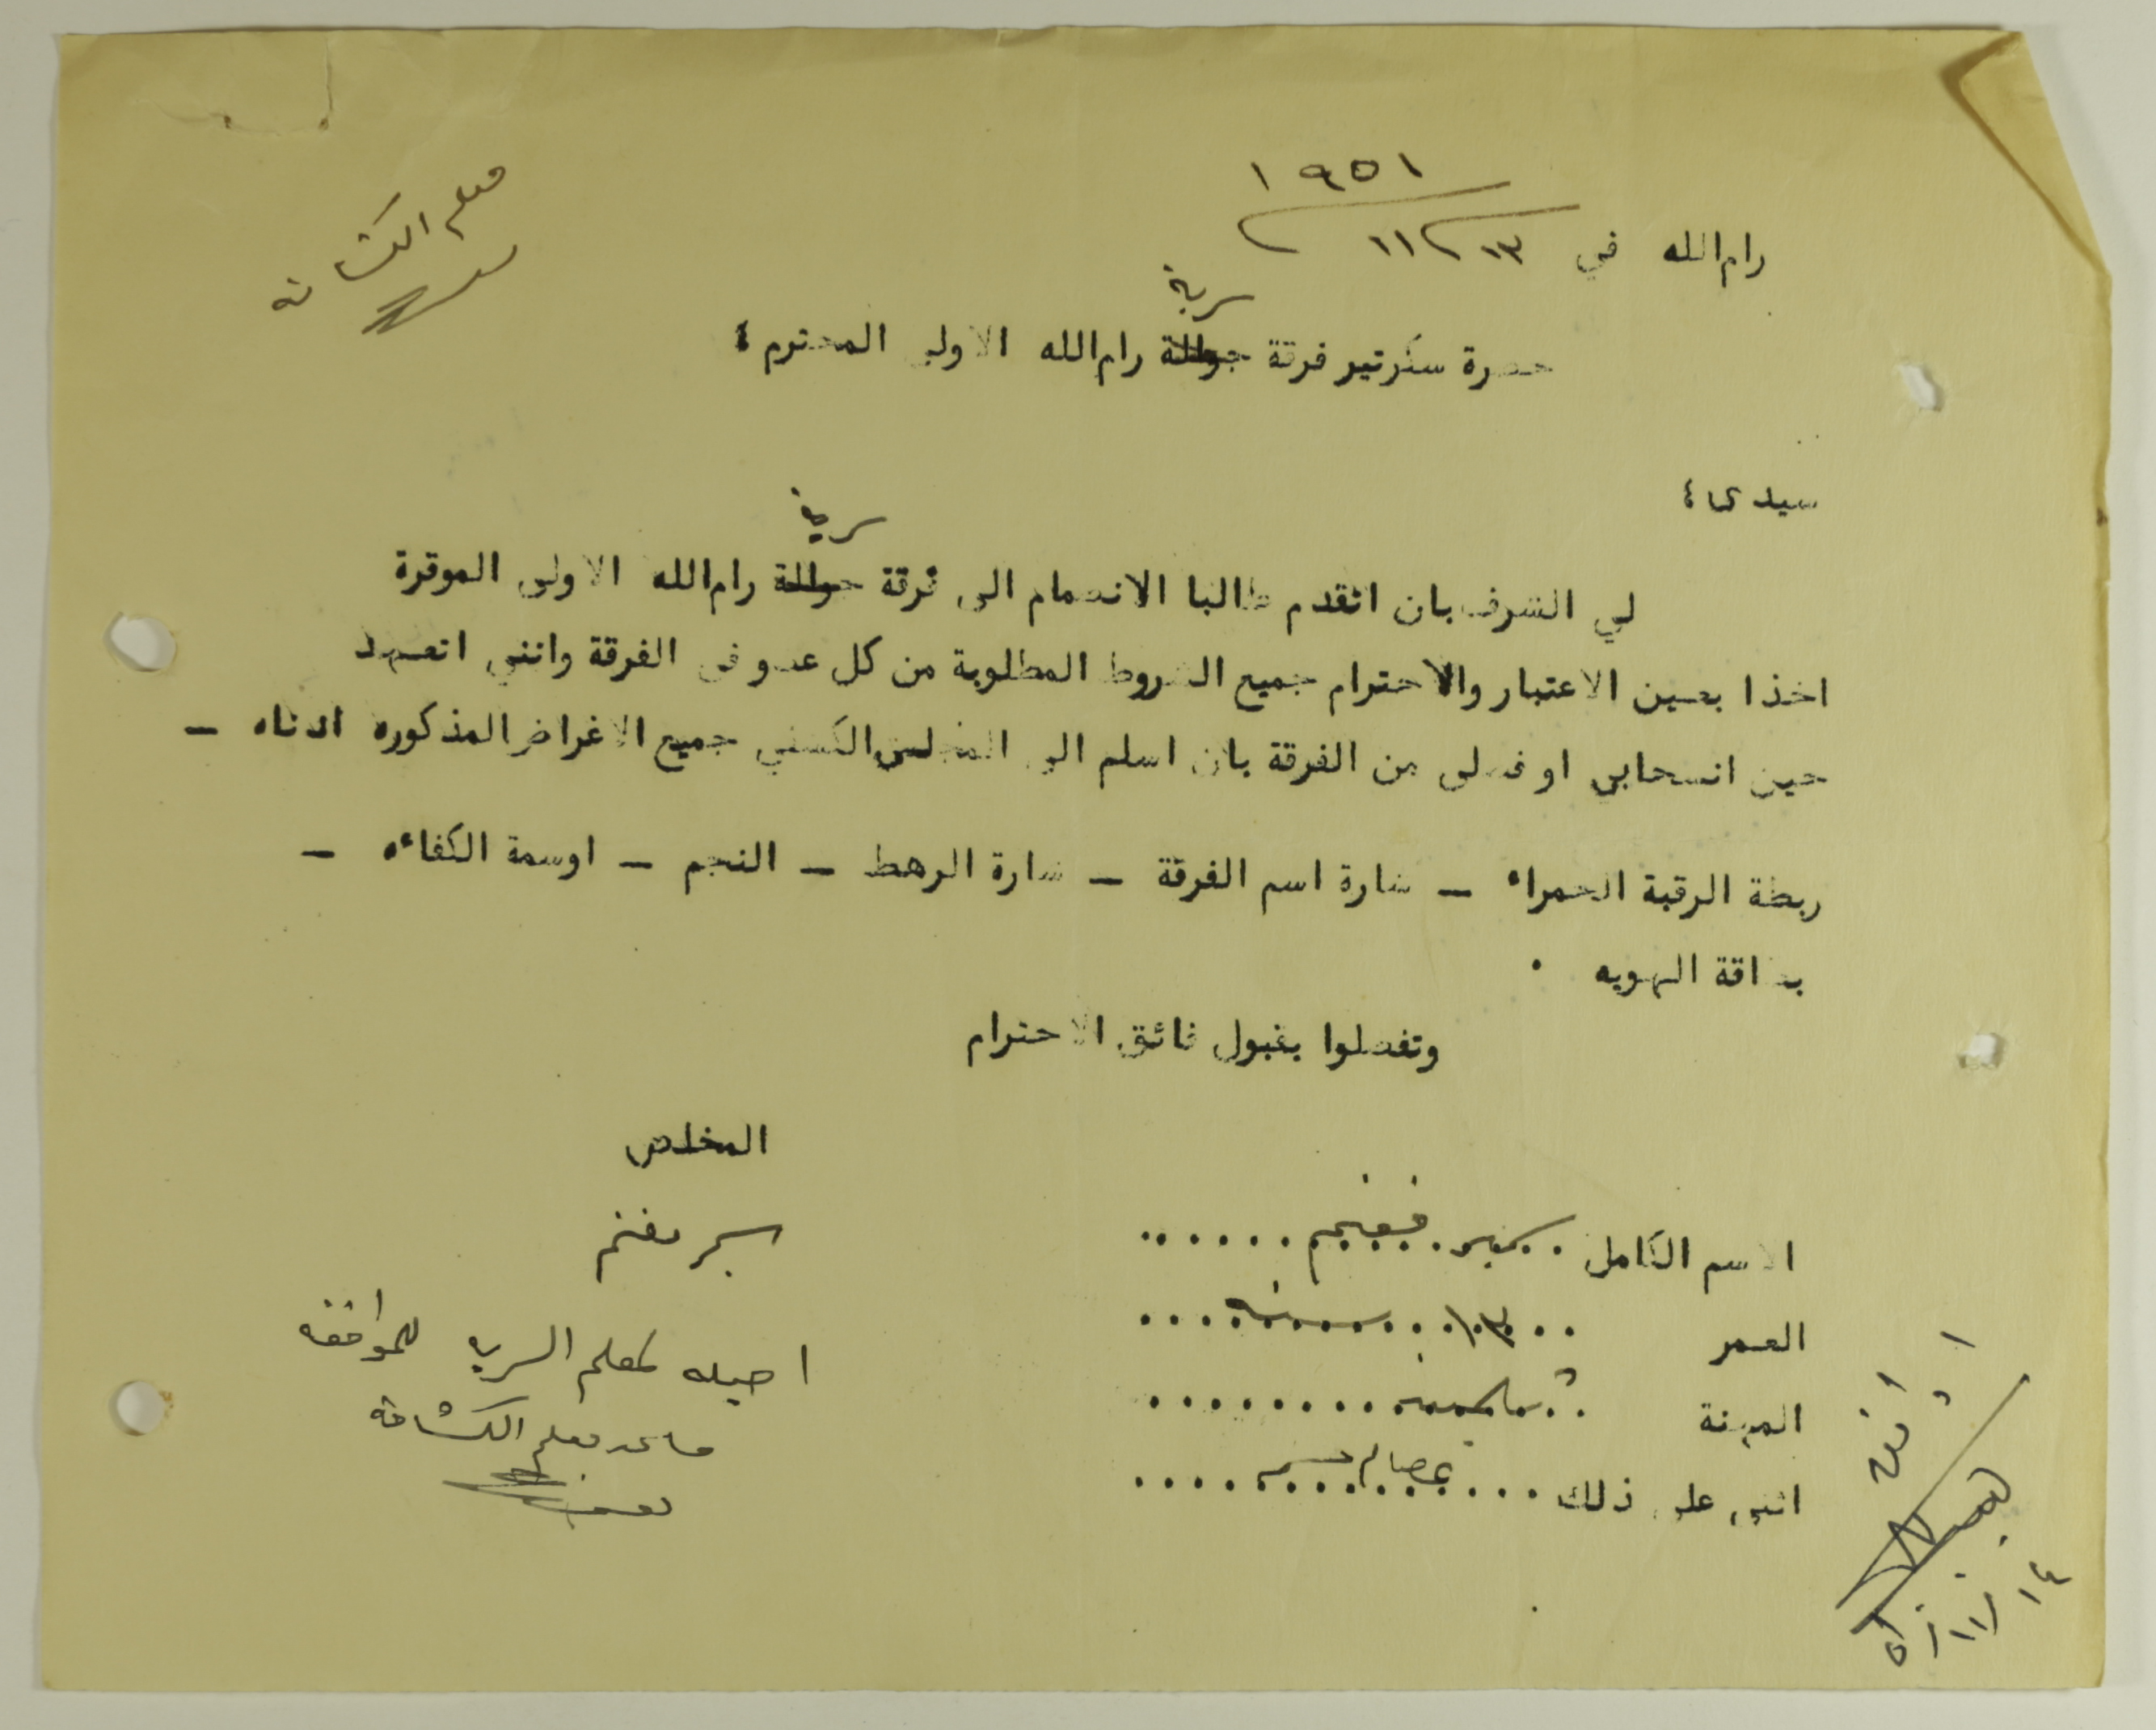 معلم الكشافة
١٩٥١
رام الله في ١٣ / ١١
سرية
حضرة سكرتير فرقة جوالة رام الله الاولى المحترم ؛
سيدى ؛
سرية
لي الشرف بان اتقدم طالبا الانضمام الى فرقة جوالة رام الله الاولى الموقرة
اخذا بعين الاعتبار والاحترام جميع الشروط المطلوبة من كل عضو في الفرقة وانني اتعهد
حين انسحابي او فصلى من الفرقة بان اسلم الى المجلس الكشفي جميع الاغراض المذكوره ادناه —
ربطة الرقبة الحمراء — شارة اسم الفرقة — شارة الرهط — النجم — اوسمة الكفاءه —
بطاقة الهويه .
وتفضلوا بقبول فائق الاحترام
المخلص
سمير مغنم
الاسم الكامل سمير مغنم
العمر ١٣ سنة
المهنة
اثنى على ذلك عصام
احيله لمعلم السرية للموافقة
مساعد معلم الكشافة
اوافق
١٤ / ١١ / ٥١